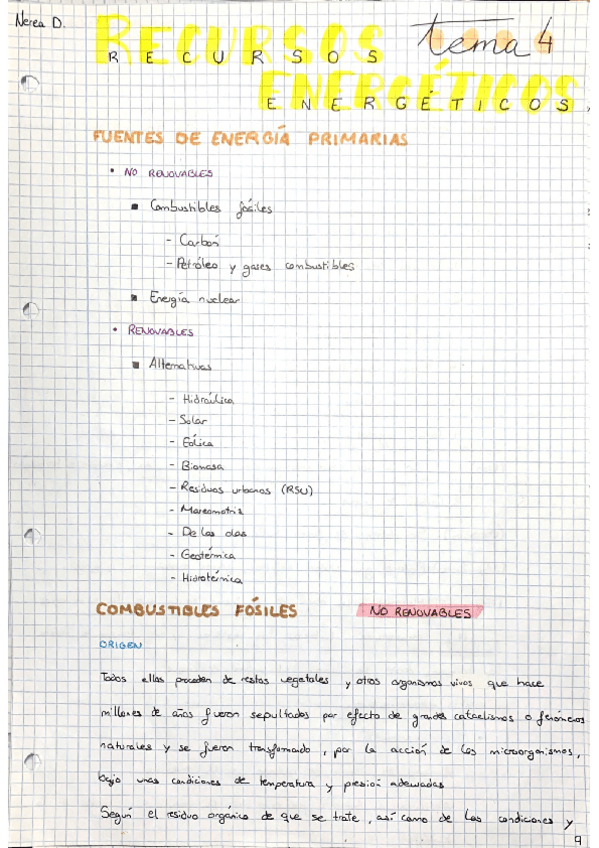 Nerea D.
RECURSOS tema 4
RECURSOS
ENERGÉTICOS
ENERGÉTICOS
FUENTES DE ENERGÍA PRIMARIAS
• NO RENOVABLES
▪ Combustibles fósiles
- Carbón
- Petróleo y gases combustibles
▪ Energía nuclear
• RENOVABLES
▪ Alternativas
- Hidraúlica
- Solar
- Eólica
- Biomasa
- Residuos urbanos (RSU)
- Mareomotriz
- De las olas
- Geotérmica
- Hidrotérmica
COMBUSTIBLES FÓSILES NO RENOVABLES
ORIGEN
Todos ellos proceden de restos vegetales y otros organismos vivos que hace
millones de años fueron sepultados por efecto de grandes cataclismos o fenómenos
naturales y se fueron transformado, por la acción de los microorganismos,
bajo unas condiciones de temperatura y presión adecuadas
Según el residuo orgánico de que se trate, así como de las condiciones y
9